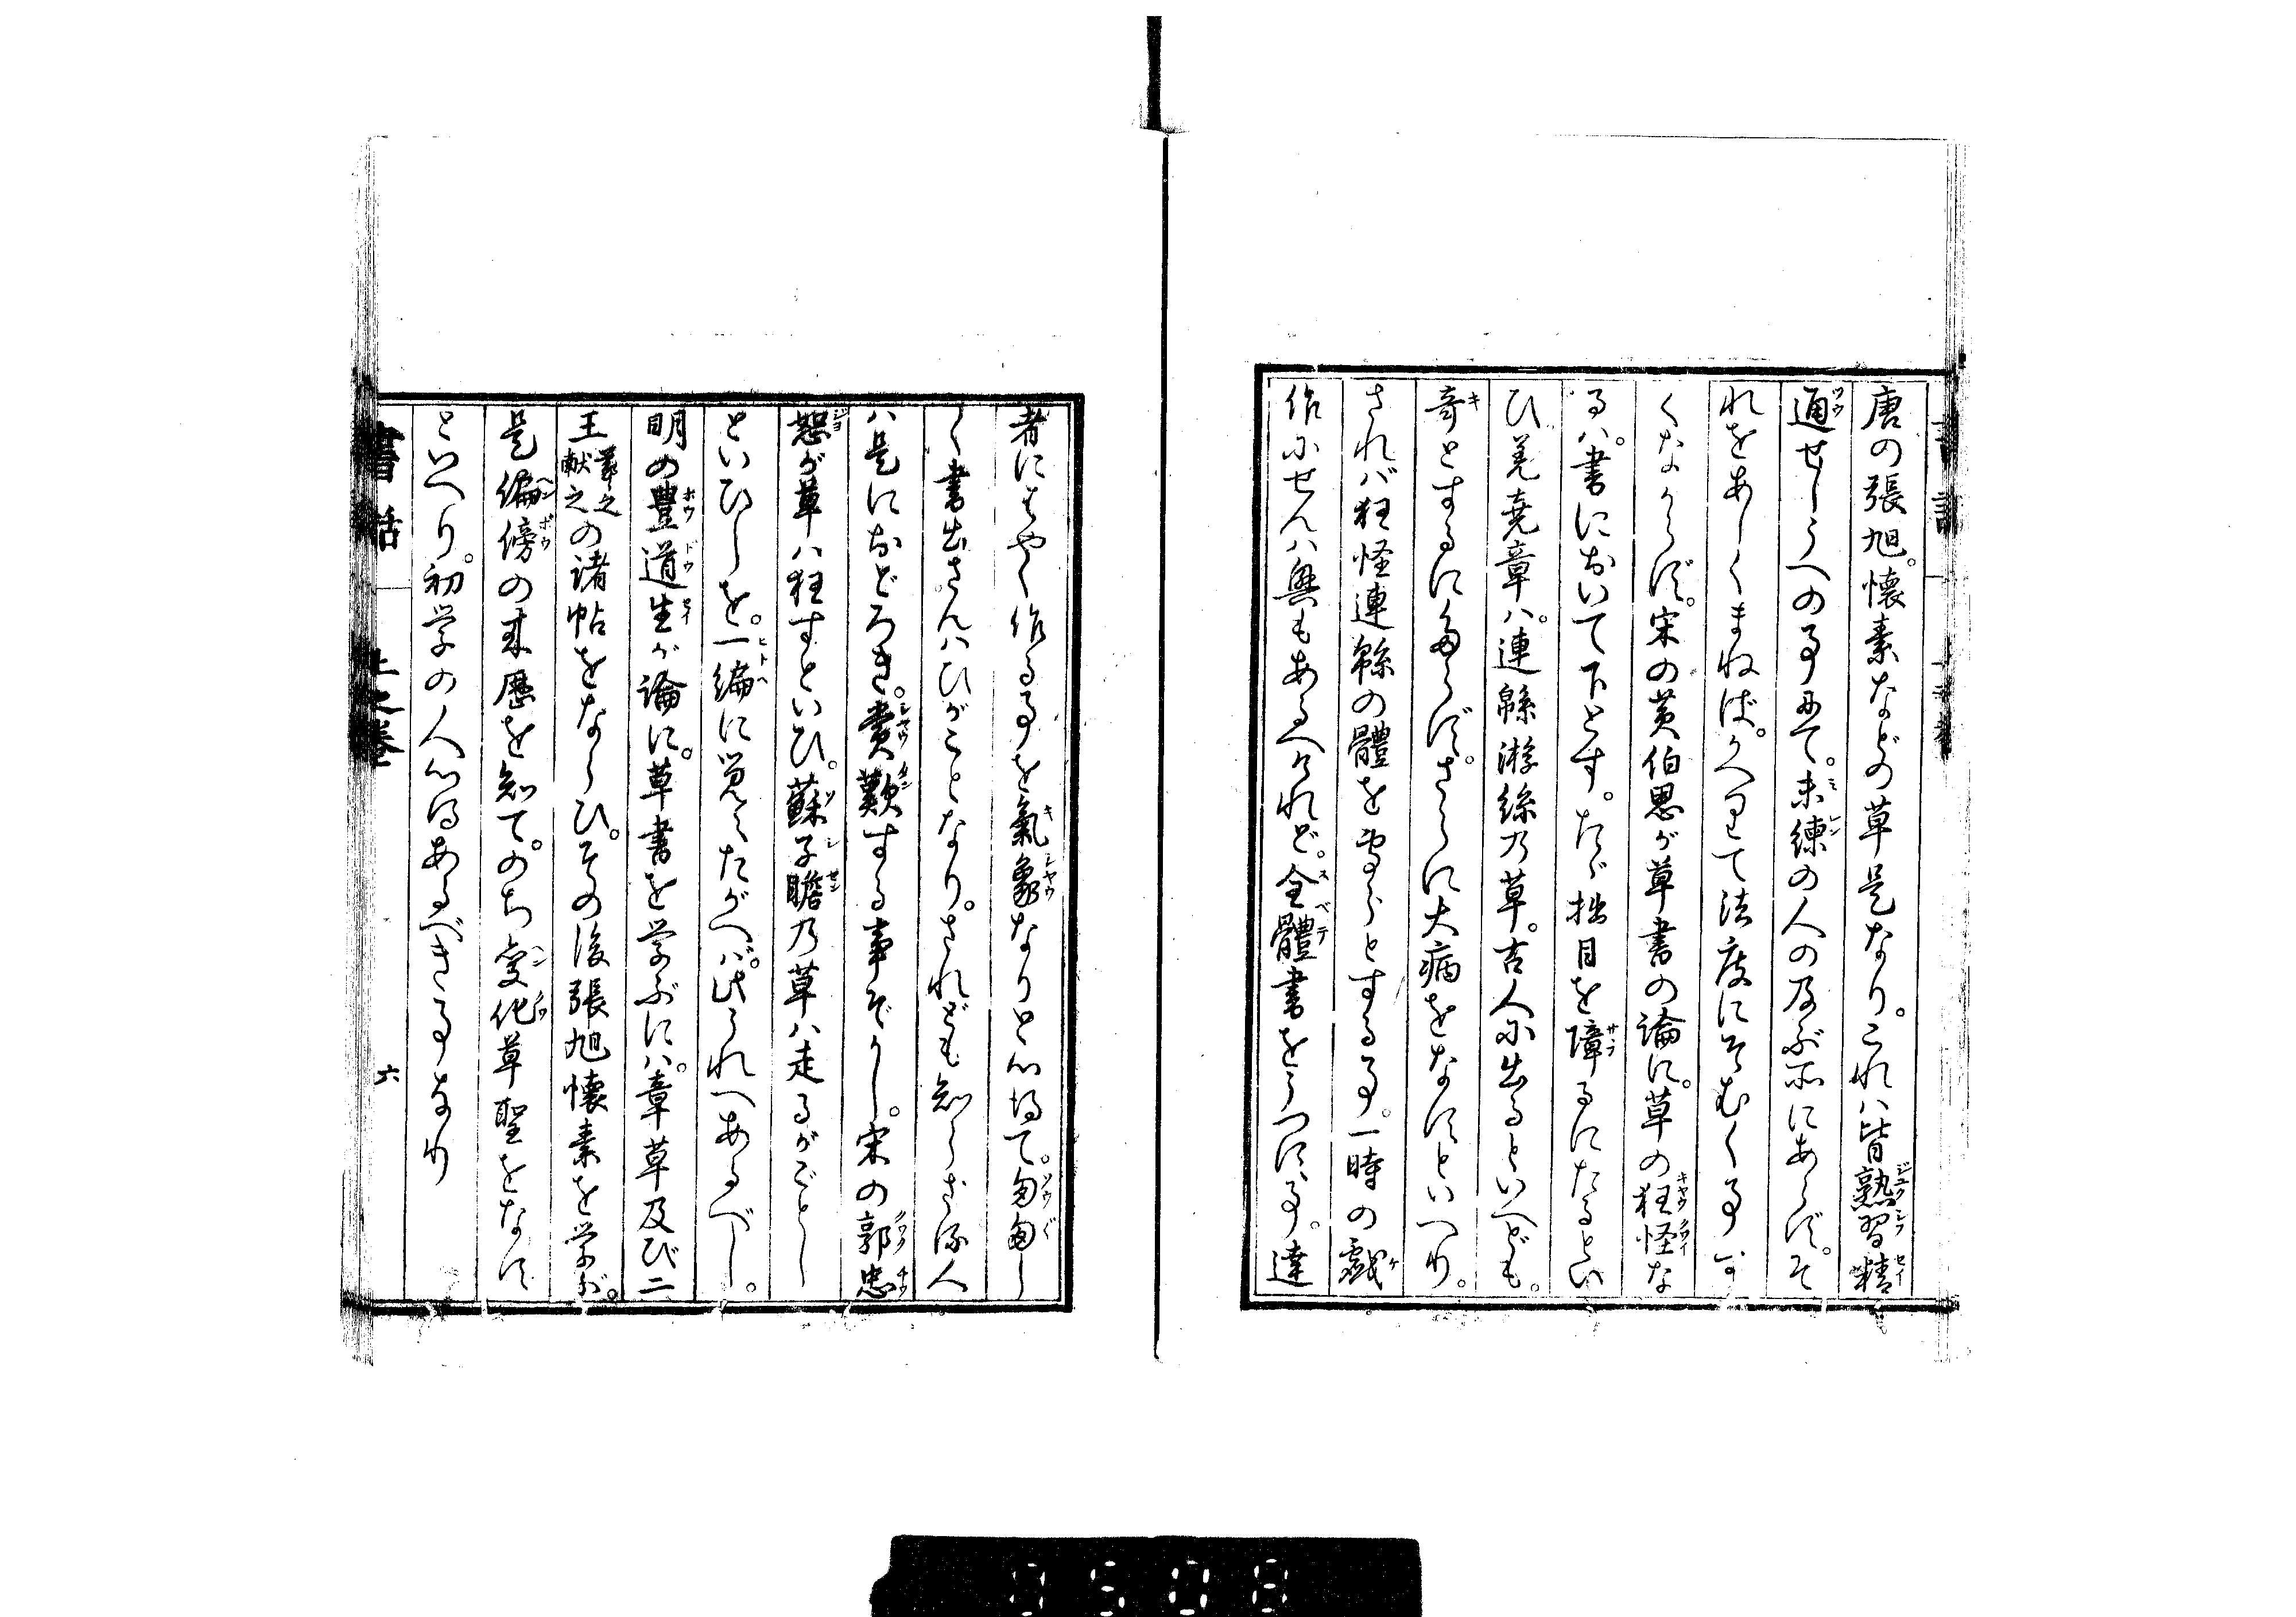 唐の張旭。懐素などの草是なり。これハ皆熟習精
通せしうへの事にて。未練の人の及ぶ所にあらず。そ
れをあしくまねば。かへりて法度にそむく事す
くなからず。宋の黄伯思が草書の論に。草の狂怪な
るハ。書において下とす。たゞ拙目を障るにたるとい
ひ羌堯章ハ。連緜游絲乃草。古人に出るといへども。
奇とするに多らず。さらに大病をなすといへり。
されバ狂怪連緜の體を専らとする事。一時の戯
作にせんハ興もあるべけれど。全體書をうつす事。達
者にはやく作る事を氣象なりと心得て。匆匆し
く書出さんハひがことなり。されども知らざる人
ハ是におどろき。賞歎する事ぞかし。宋の郭忠
恕が草ハ狂すといひ。蘇子瞻乃草ハ走るがごとし
といひしを。一編に覚えたがへバ。此うれへあるべし。
明の豊道生が論に。草書を学ぶにハ。章草及び二
王羲之献之の諸帖をならひ。その後張旭懐素を学が。
是編傍の来歴を知て。のち変化草聖をなす
といへり。初学の人心得あるべき事なり
書話
上之巻
六